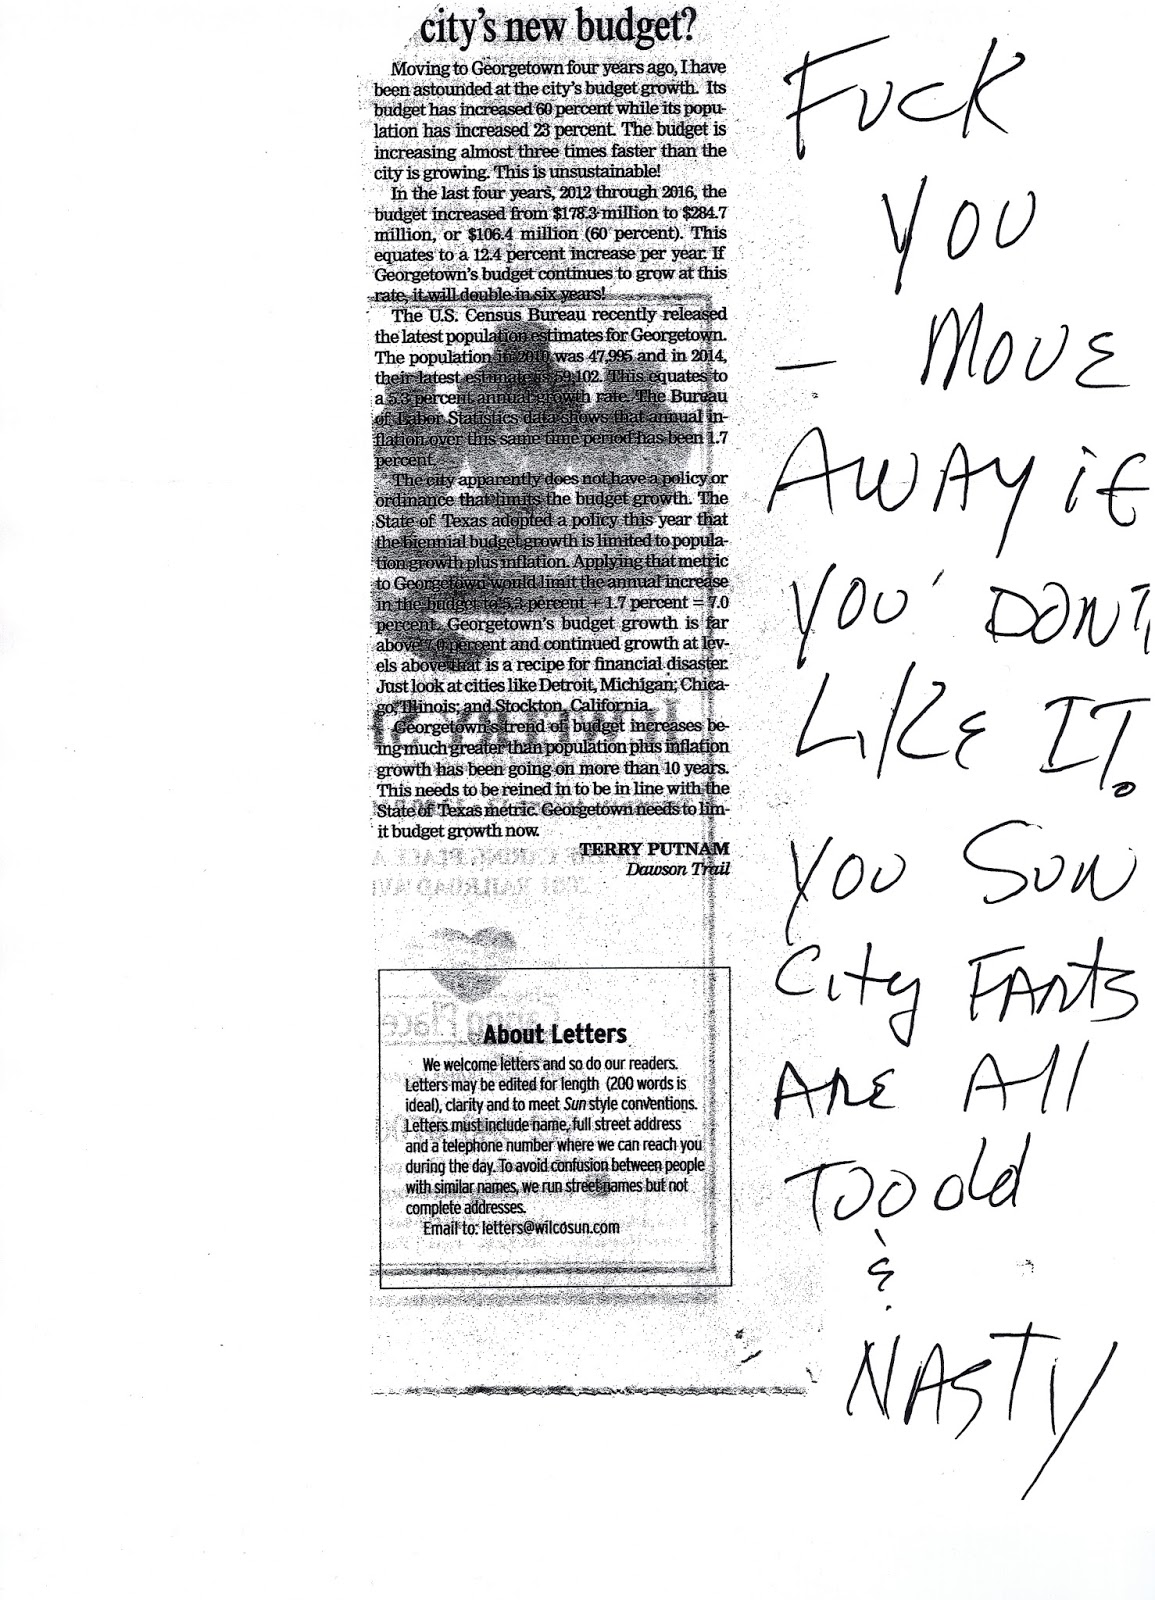 city's new budget?
Moving to Georgetown four years ago, I have
been astounded at the city's budget growth. Its
budget has increased 60 percent while its popu-
lation has increased 23 percent. The budget is
increasing almost three times faster than the
city is growing. This is unsustainable!
In the last four years, 2012 through 2016, the
budget increased from $178.3 million to $284.7
million, or $106.4 million (60 percent). This
equates to a 12.4 percent increase per year. If
Georgetown's budget continues to grow at this
rate, it will double in six years!
The U.S. Census Bureau recently released
the latest population estimates for Georgetown.
The population in 2010 was 47,995 and in 2014,
their latest estimate is 59,102. This equates to
a 5.3 percent annual growth rate. The Bureau
of Labor Statistics data shows that annual in-
flation over this same time period has been 1.7
percent.
The city apparently does not have a policy or
ordinance that limits the budget growth. The
State of Texas adopted a policy this year that
the biennial budget growth is limited to popula-
tion growth plus inflation. Applying that metric
to Georgetown would limit the annual increase
in the budget to 5.3 percent + 1.7 percent = 7.0
percent. Georgetown's budget growth is far
above 7.0 percent and continued growth at lev-
els above that is a recipe for financial disaster.
Just look at cities like Detroit, Michigan; Chica-
go, Illinois; and Stockton, California.
Georgetown's trend of budget increases be-
ing much greater than population plus inflation
growth has been going on more than 10 years.
This needs to be reined in to be in line with the
State of Texas metric. Georgetown needs to lim-
it budget growth now.
TERRY PUTNAM
Dawson Trail
About Letters
We welcome letters and so do our readers.
Letters may be edited for length (200 words is
ideal), clarity and to meet Sun style conventions.
Letters must include name, full street address
and a telephone number where we can reach you
during the day. To avoid confusion between people
with similar names, we run street names but not
complete addresses.
Email to: letters@wilcosun.com
FUCK
YOU
— MOVE
AWAY iF
YOU DON'T
LIKE IT.
YOU SUN
City FARTS
ARE All
TOO old
&
NASTY